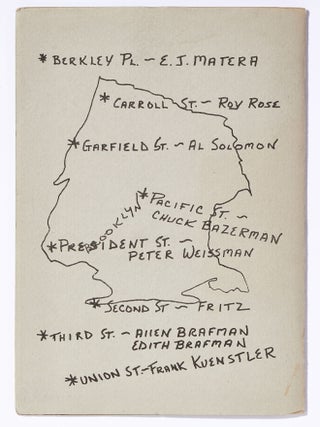 *BERKLEY PL. ~ E.J. MATERA
*CARROLL ST. ~ ROY ROSE
*GARFIELD ST. ~ AL SOLOMON
*PACIFIC ST. ~
CHUCK BAZERMAN
BROOKLYN
*PRESIDENT ST. ~
PETER WEISSMAN
*SECOND ST ~ FRITZ
*THIRD ST. ~ ALLEN BRAFMAN
EDITH BRAFMAN
*UNION ST.~FRANK KUENSTLER